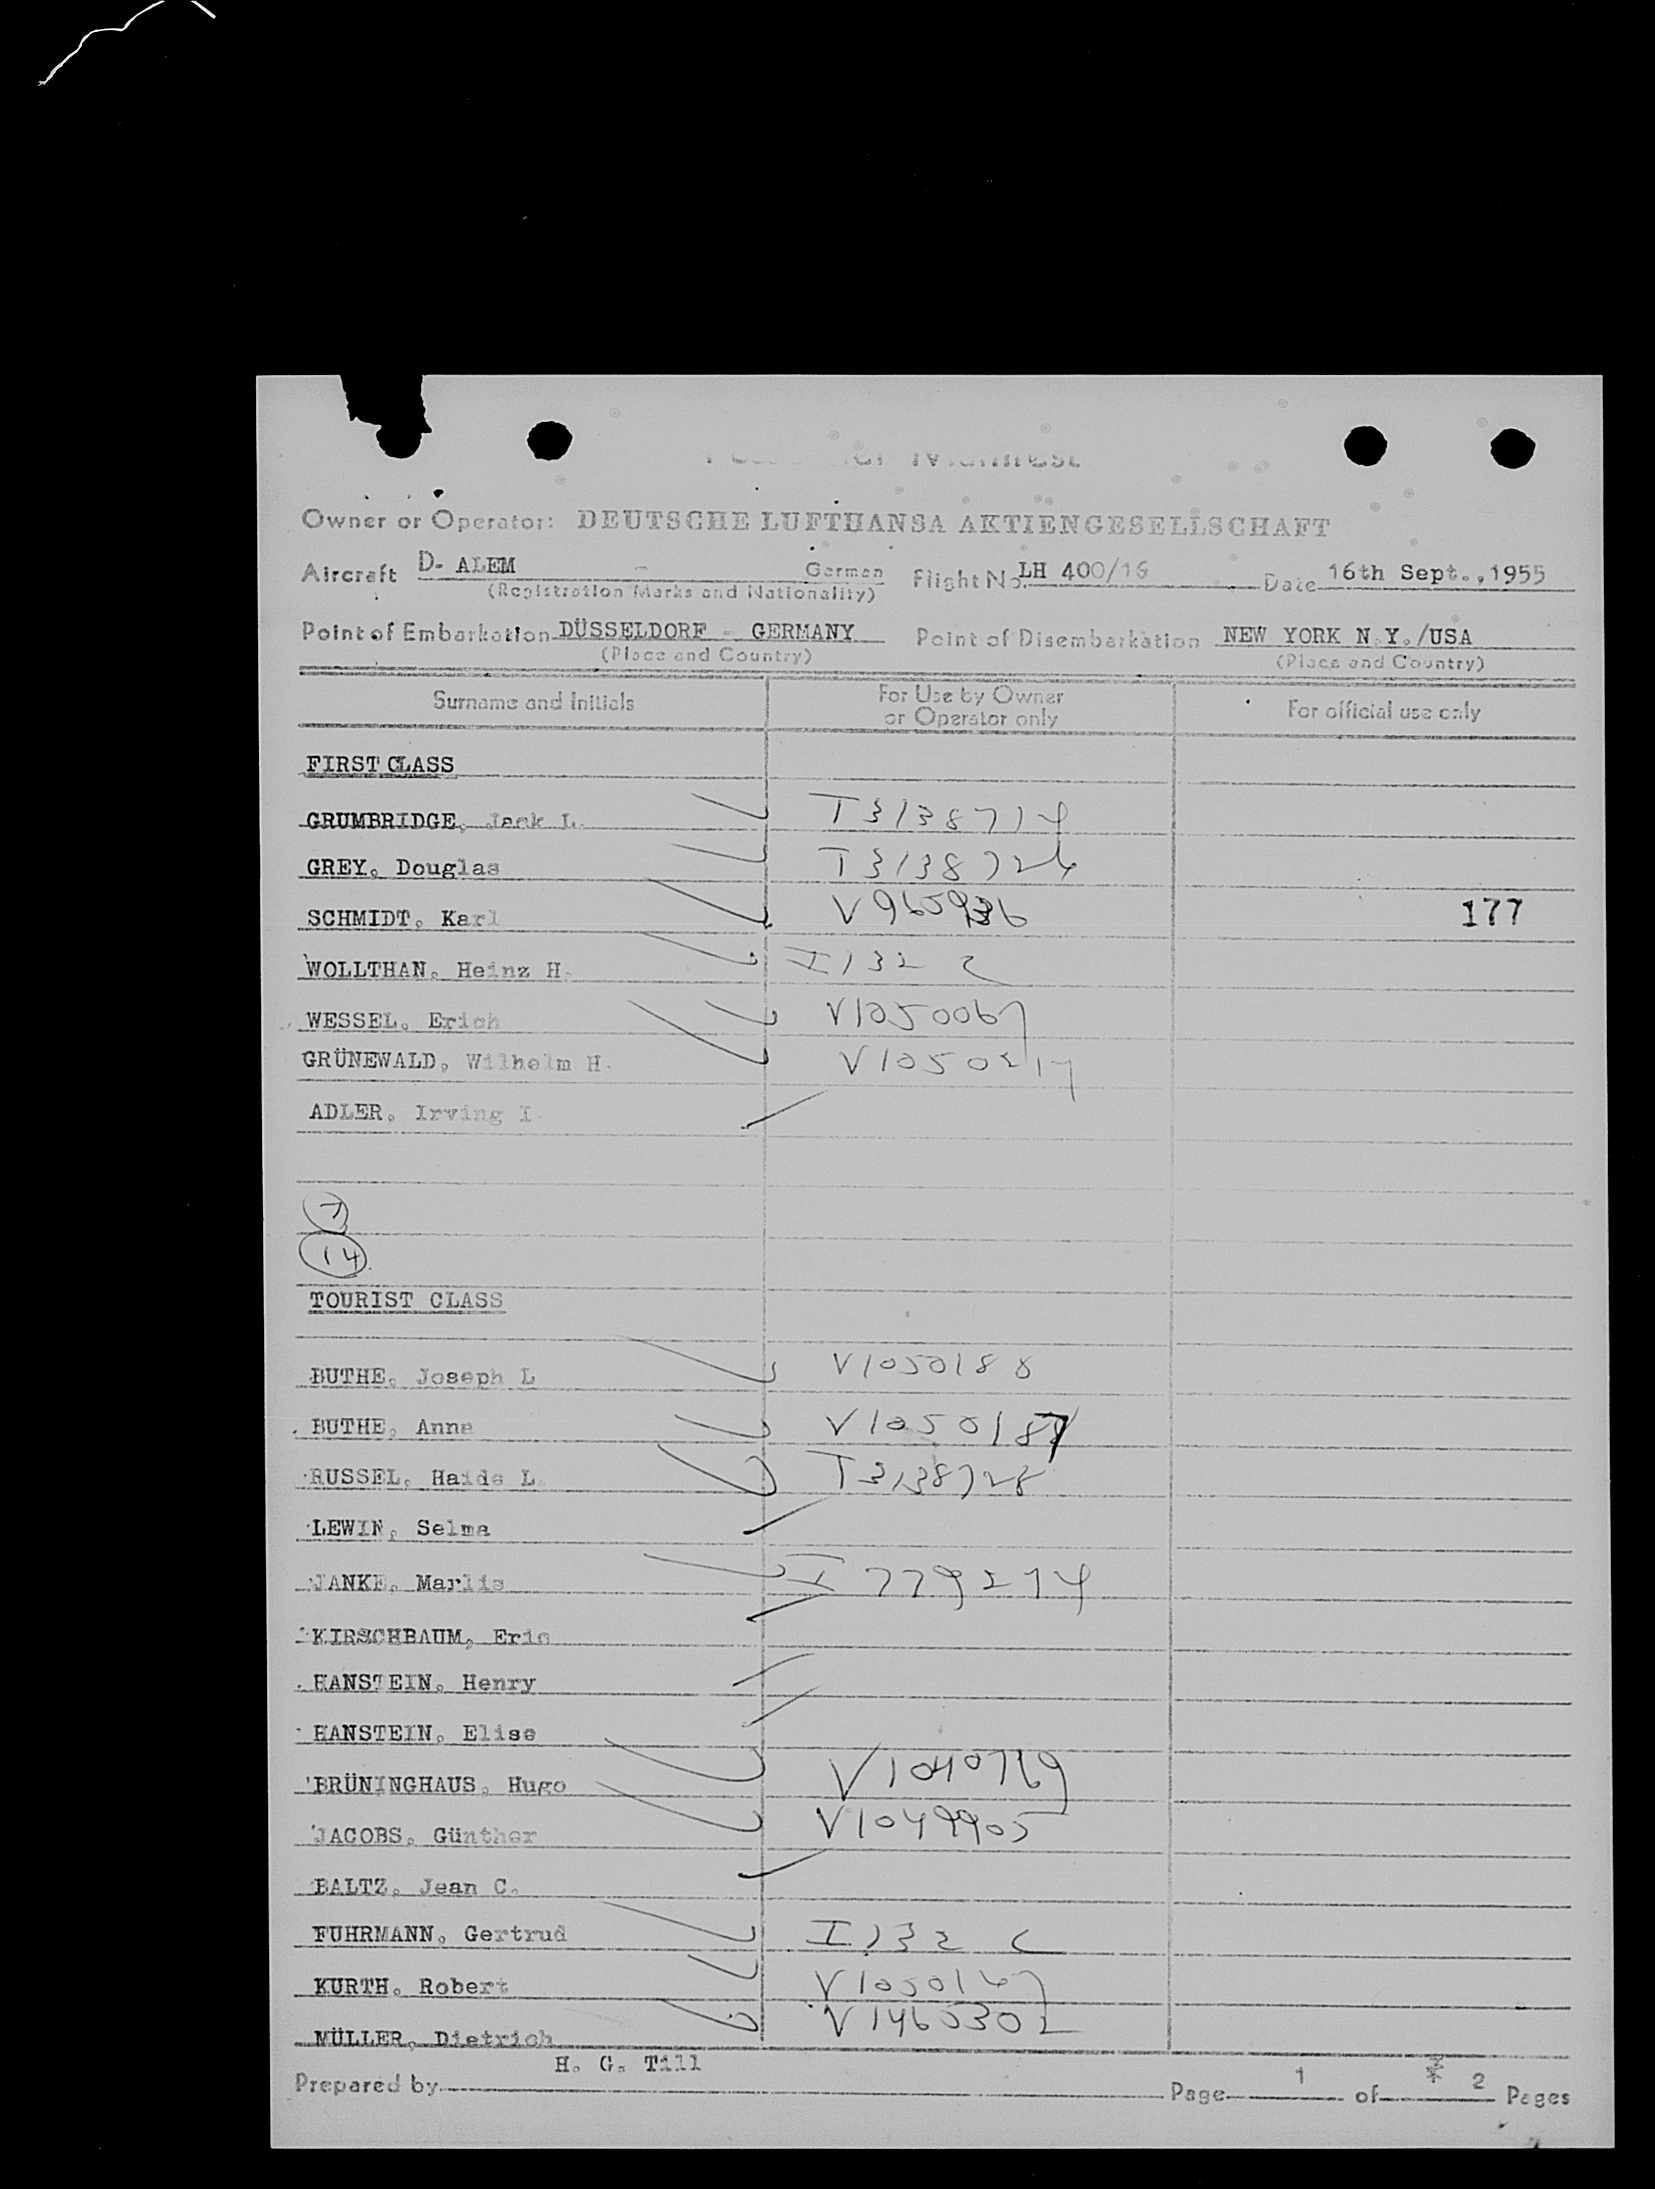 Manifest
Owner or Operator: DEUTSCHE LUFTHANSA AKTIENGESELLSCHAFT
Aircraft D- ALEM - German Flight No. LH 400/16 Date 16th Sept., 1955
(Registration Marks and Nationality)
Point of Embarkation DÜSSELDORF - GERMANY Point of Disembarkation NEW YORK N.Y./USA
(Place and Country) (Place and Country)
Surname and Initials For Use by Owner or Operator only For official use only
FIRST CLASS
GRUMBRIDGE, Jack L. T3138714
GREY, Douglas T3138724
SCHMIDT, Karl 177
WOLLTHAN, Heinz H. I132 C
WESSEL, Erich V1050067
GRÜNEWALD, Wilhelm H. V1050217
ADLER, Irving I.
7
14
TOURIST CLASS
BUTHE, Joseph L V1050188
BUTHE, Anna V1050187
RUSSEL, Haide L T3138728
LEWIN, Selma
JANKE, Marlis I 779274
KIRSCHBAUM, Eric
HANSTEIN, Henry
HANSTEIN, Elise
BRÜNINGHAUS, Hugo
JACOBS, Günther V1049905
BALTZ, Jean C.
FUHRMANN, Gertrud I132 C
KURTH, Robert V1050167
MÜLLER, Dietrich V1465302
Prepared by H. G. Till Page 1 of 2 Pages